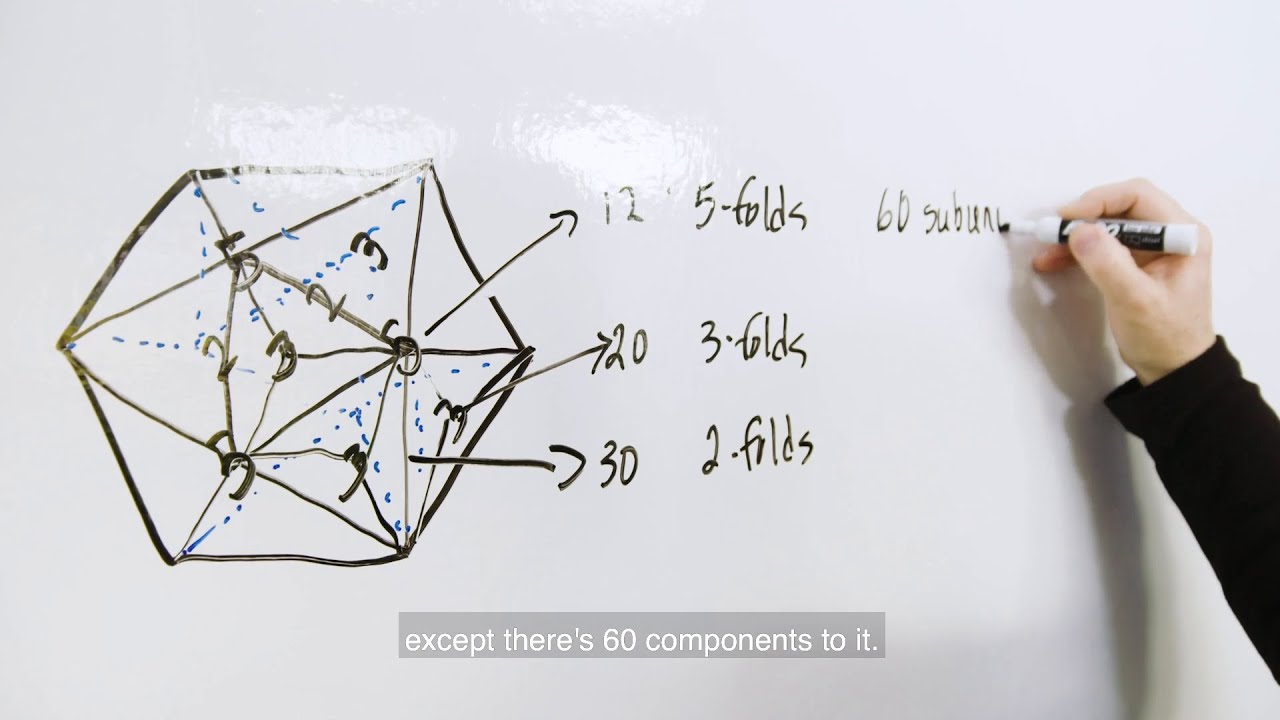 12 5-folds 60 subun
20 3-folds
30 2-folds
5
3
2
5
2
3
5
3
3
except there's 60 components to it.